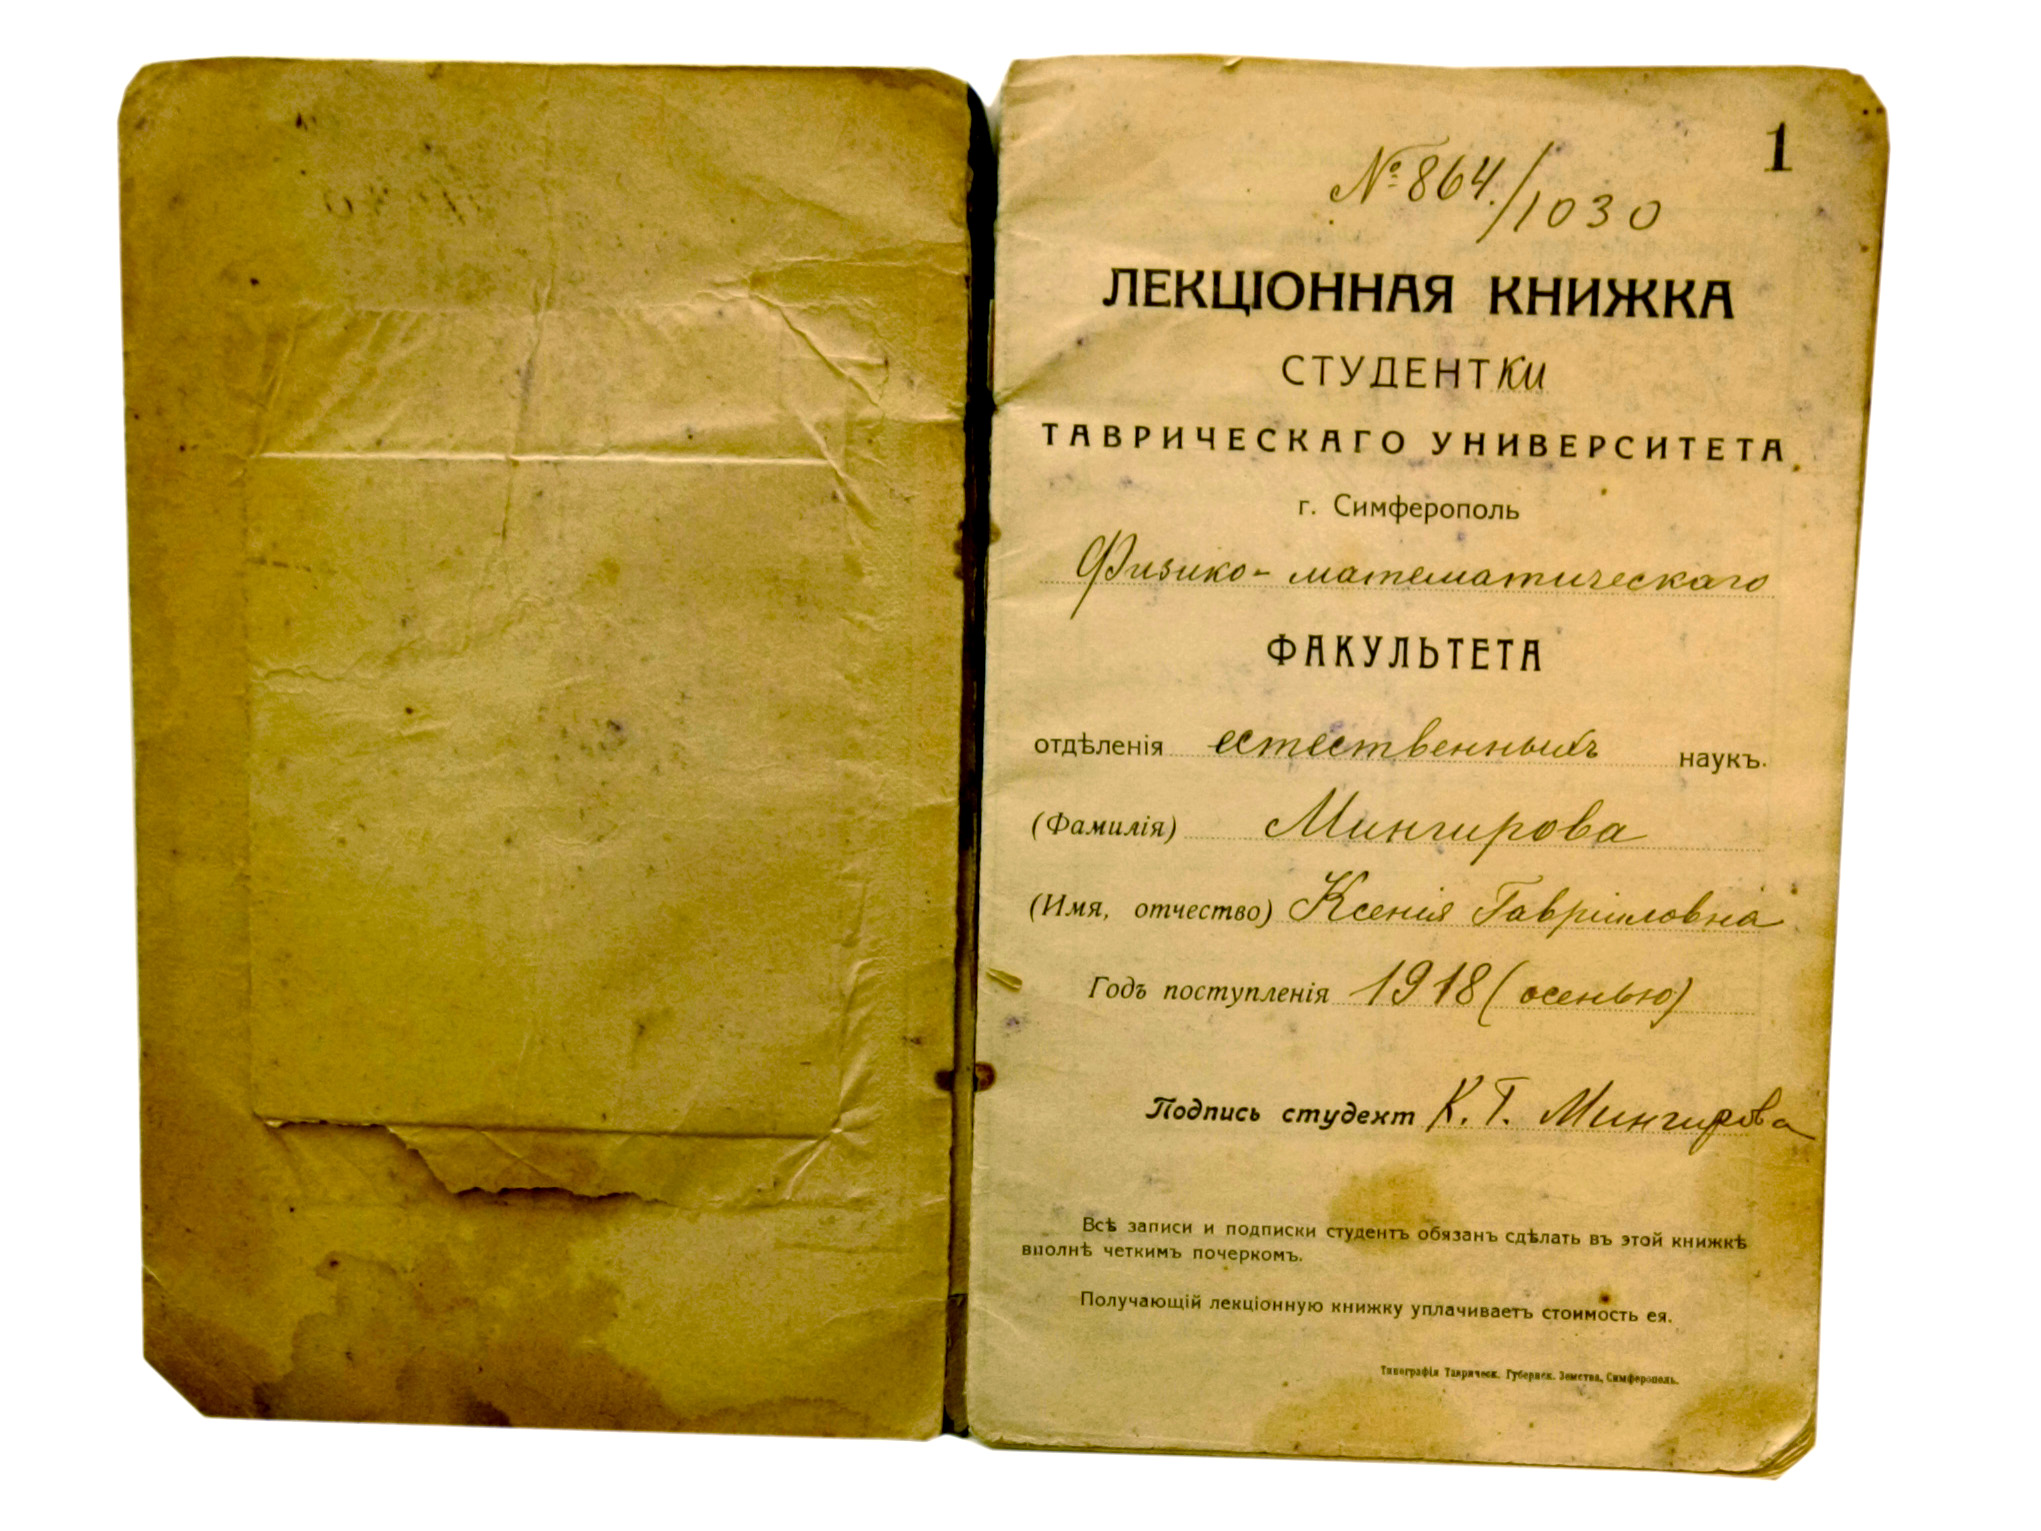 1
№ 864./1030
ЛЕКЦІОННАЯ КНИЖКА
СТУДЕНТки
ТАВРИЧЕСКАГО УНИВЕРСИТЕТА
г. Симферополь
Физико-математическаго
ФАКУЛЬТЕТА
отдѣленія естественныхъ наукъ.
(Фамилія) Мингирова
(Имя, отчество) Ксенія Гавріиловна
Годъ поступленія 1918 (осенью)
Подпись студент К. Г. Мингирова
Всѣ записи и подписки студентъ обязанъ сдѣлать въ этой книжкѣ
вполнѣ четкимъ почеркомъ.
Получающій лекціонную книжку уплачиваетъ стоимость ея.
Типографія Таврическ. Губернск. Земства, Симферополь.